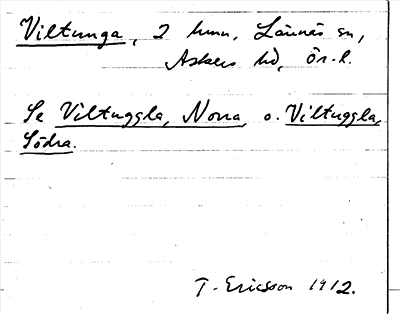 Viltunga, 2 hmn, Lännäs sn,
Askers hd, Ör. l.
Se Viltuggla, Norra o. Viltuggla,
Södra.
T. Ericsson 1912.